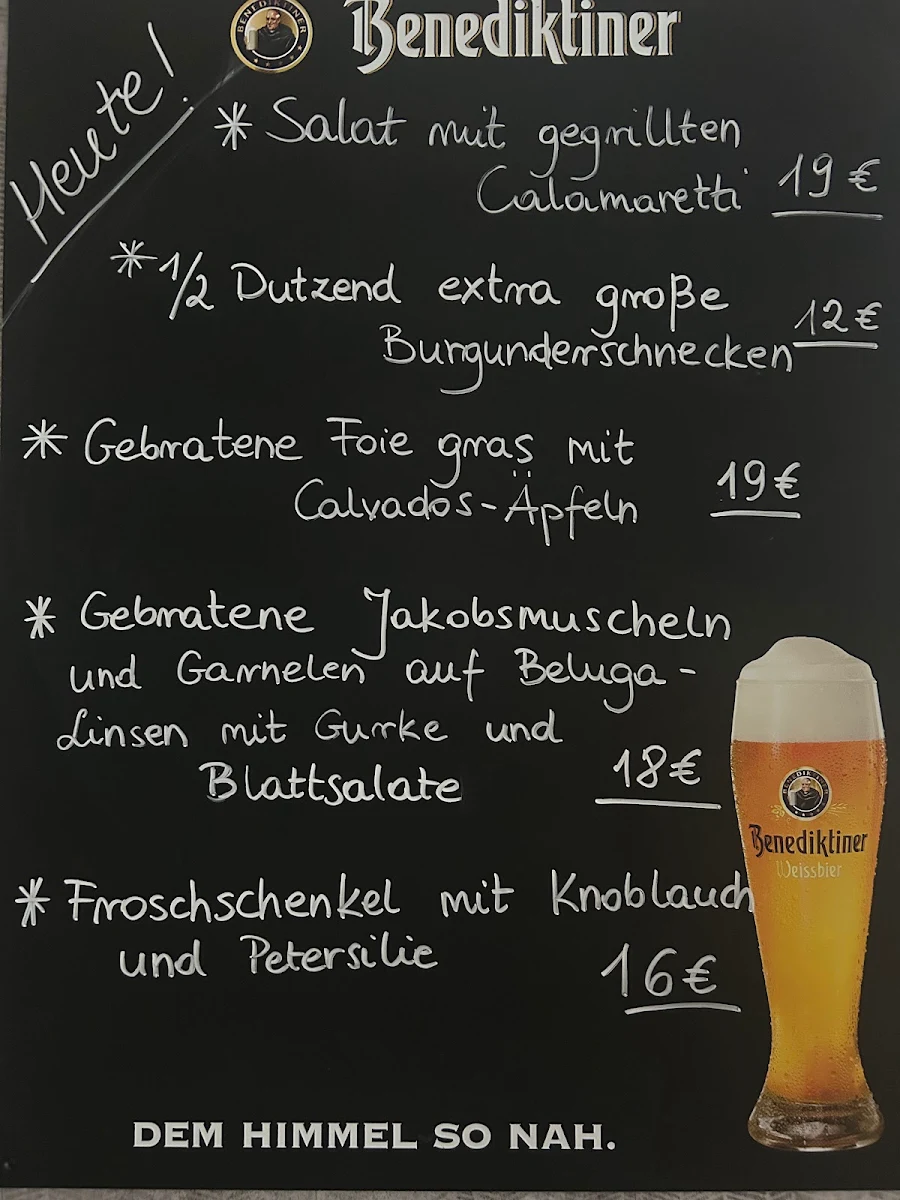 BENEDIKTINER
Benediktiner
Heute!
* Salat mit gegrillten
Calamaretti 19 €
* 1/2 Dutzend extra große
Burgunderschnecken 12 €
* Gebratene Foie gras mit
Calvados-Äpfeln 19 €
* Gebratene Jakobsmuscheln
und Garnelen auf Beluga-
Linsen mit Gurke und
Blattsalate 18 €
* Froschschenkel mit Knoblauch
und Petersilie 16 €
BENEDIKTINER
Benediktiner
Weissbier
DEM HIMMEL SO NAH.